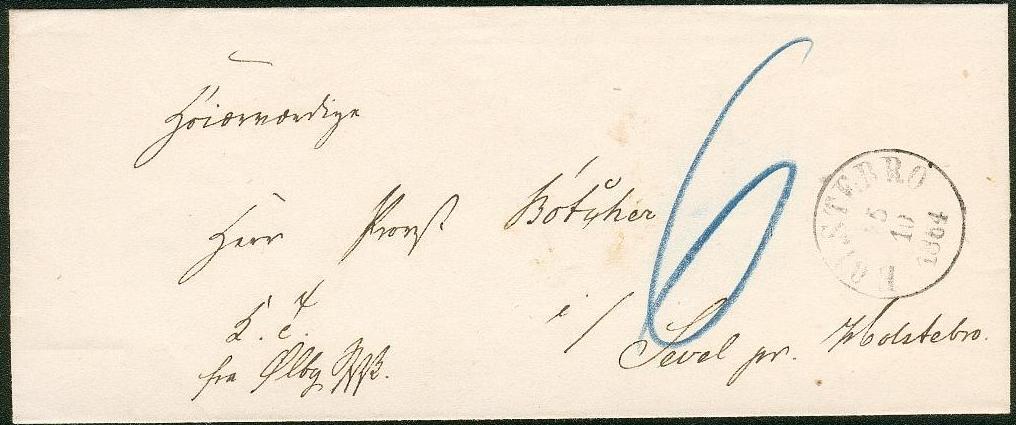 Höiærværdige
Herr Provst Bötcher
i / Sevel pr. Holstebro.
fra Ølby
6
HOLSTEBRO
10
1864